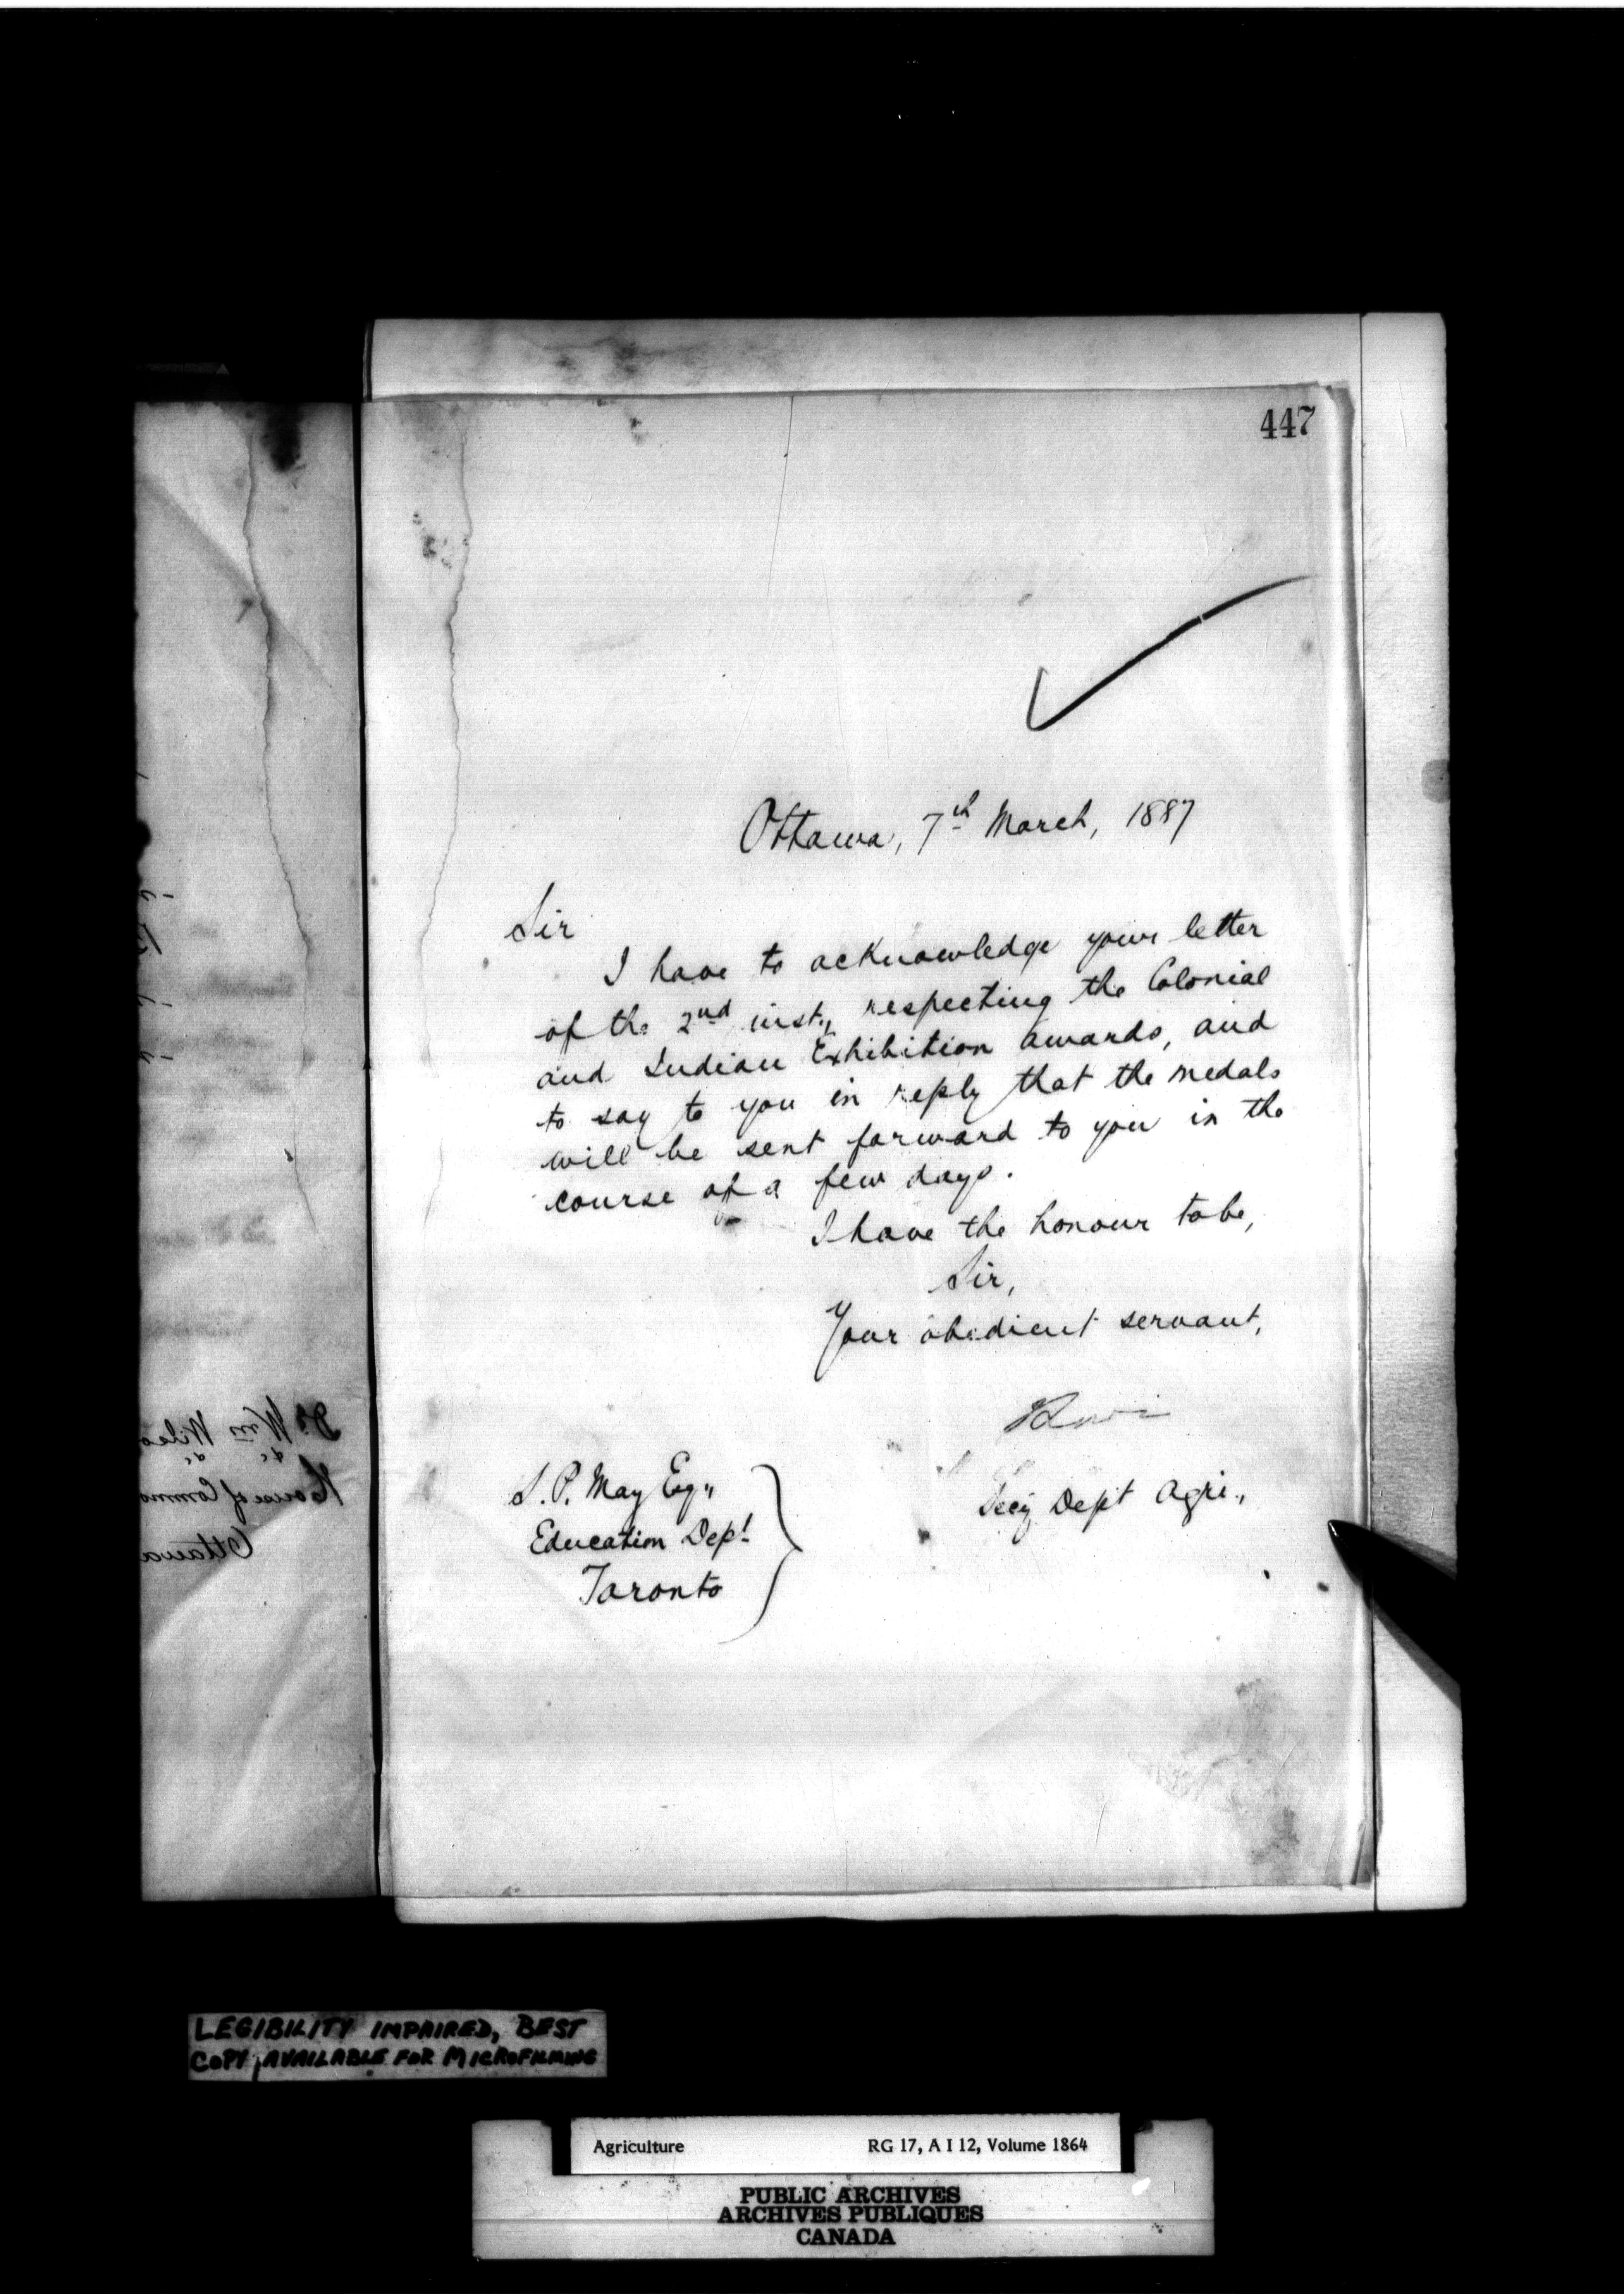 447
Ottawa, 7th March, 1887
Sir
I have to acknowledge your letter
of the 2nd inst., respecting the Colonial
and Indian Exhibition awards, and
to say to you in reply that the medals
will be sent forward to you in the
course of a few days.
I have the honour to be,
Sir,
Your obedient servant,
Secy Dept Agri.,
S. P. May Esq.,
Education Dept.
Toronto
Dr. Wm
House of
Ottawa
LEGIBILITY IMPAIRED, BEST
COPY AVAILABLE FOR MICROFILMING
Agriculture RG 17, A I 12, Volume 1864
PUBLIC ARCHIVES
ARCHIVES PUBLIQUES
CANADA